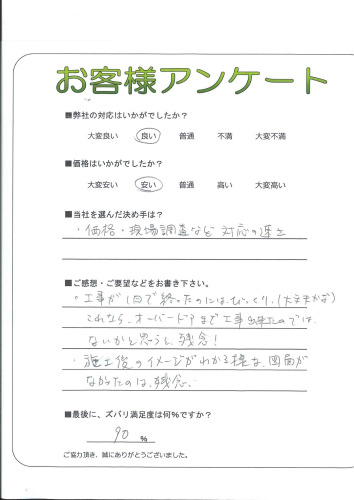 お客様アンケート
■弊社の対応はいかがでしたか?
大変良い 良い 普通 不満 大変不満
■価格はいかがでしたか?
大変安い 安い 普通 高い 大変高い
■当社を選んだ決め手は?
・価格・現場調査など対応の速さ
■ご感想・ご要望などをお書き下さい。
・工事が1日で終ったのには、びっくり、(大丈夫かな)
これなら、オーバードアまで工事出来たのでは、
ないかと思うと、残念!
・施工後のイメージがわかる様な、図面が
なかったのは、残念、
■最後に、ズバリ満足度は何%ですか?
90 %
ご協力頂き、誠にありがとうございました。